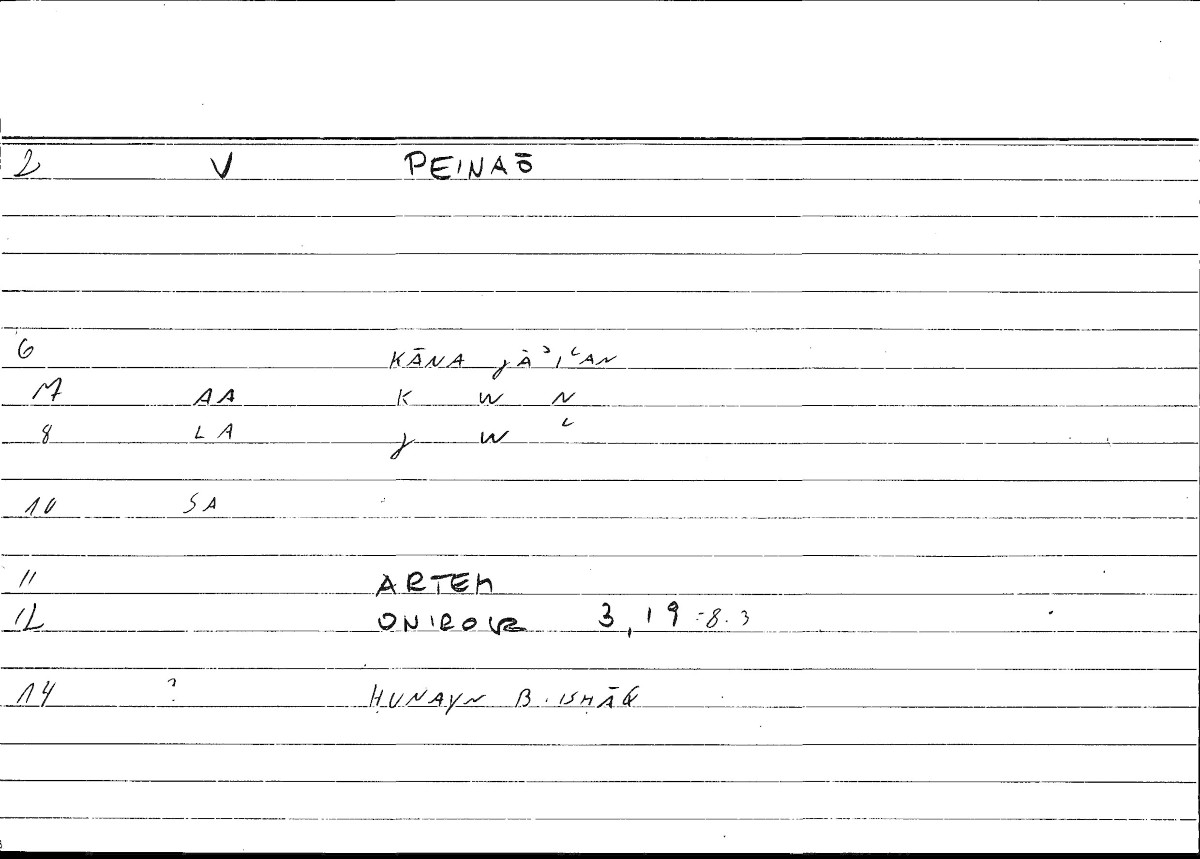 2 V PEINAŌ
6 KĀNA ǧĀʾIʿAN
7 AA K W N
8 LA ǧ W ʿ
10 SA
11 ARTEM
12 ONIROCR 3,19 = 8.3
14 ? ḤUNAYN B. ISḤĀQ